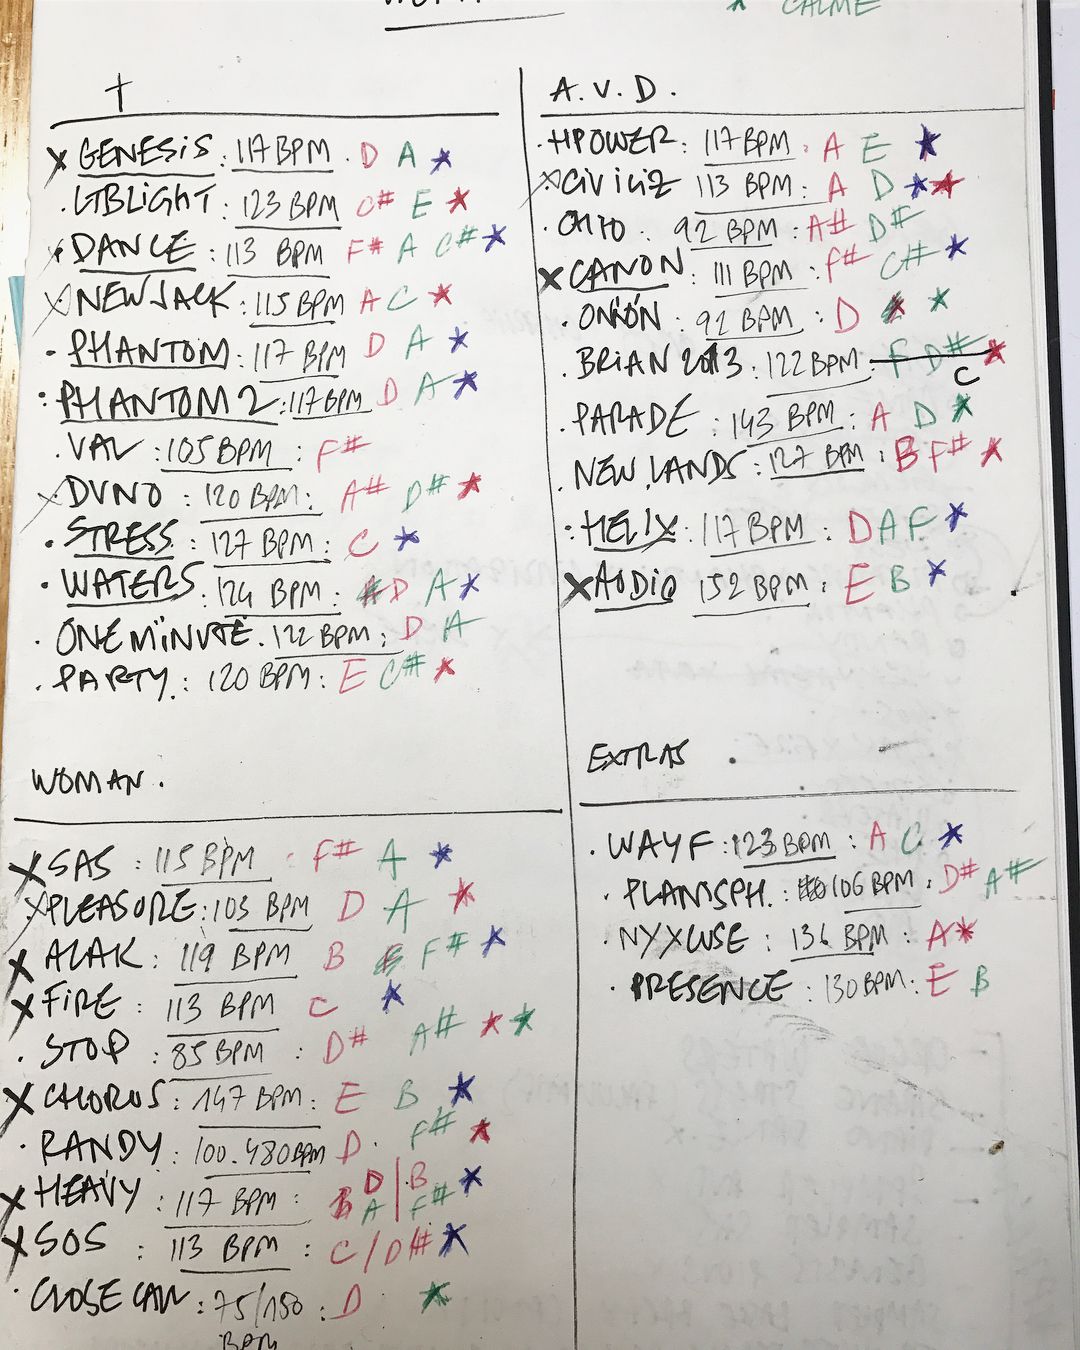 CALME
†
GENESIS : 117 BPM . D A *
. LTBLIGHT : 123 BPM C# E *
DANCE : 113 BPM F# A C# *
X NEWJACK : 115 BPM A C *
. PHANTOM : 117 BPM D A *
: PHANTOM 2 : 117 BPM D A *
. VAL : 105 BPM : F#
X DVNO : 120 BPM : A# D# *
. STRESS : 127 BPM : C *
. WATERS : 124 BPM : D A *
. ONE MINUTE . 122 BPM : D A
. PARTY : 120 BPM : E C# *
A.V.D.
. HPOWER : 117 BPM . A E *
X CIVILIZ 113 BPM : A D * *
. OHIO . 92 BPM : A# D#
X CANON : 111 BPM : F# C# *
. ONION : 92 BPM : D * *
. BRIAN 2013 : 122 BPM . F D# *
C
. PARADE : 143 BPM : A D *
. NEW LANDS : 127 BPM : B F# *
. HELIX : 117 BPM : D A F *
X AUDIO 152 BPM : E B *
WOMAN .
X SAS : 115 BPM : F# A *
X PLEASURE : 103 BPM D A *
X ALAK : 119 BPM B F# *
X FIRE : 113 BPM C *
. STOP : 85 BPM : D# A# * *
X CHORUS : 147 BPM : E B *
. RANDY : 100.480 BPM D . F# *
X HEAVY : 117 BPM : D A | B F# *
X SOS : 113 BPM : C / D# *
. CLOSE CALL : 75/150 : D *
BPM
EXTRAS .
. WAYF : 123 BPM : A C *
. PLANISPH. : 106 BPM . D# A#
. NYXUSE : 136 BPM : A *
. PRESENCE : 130 BPM : E B